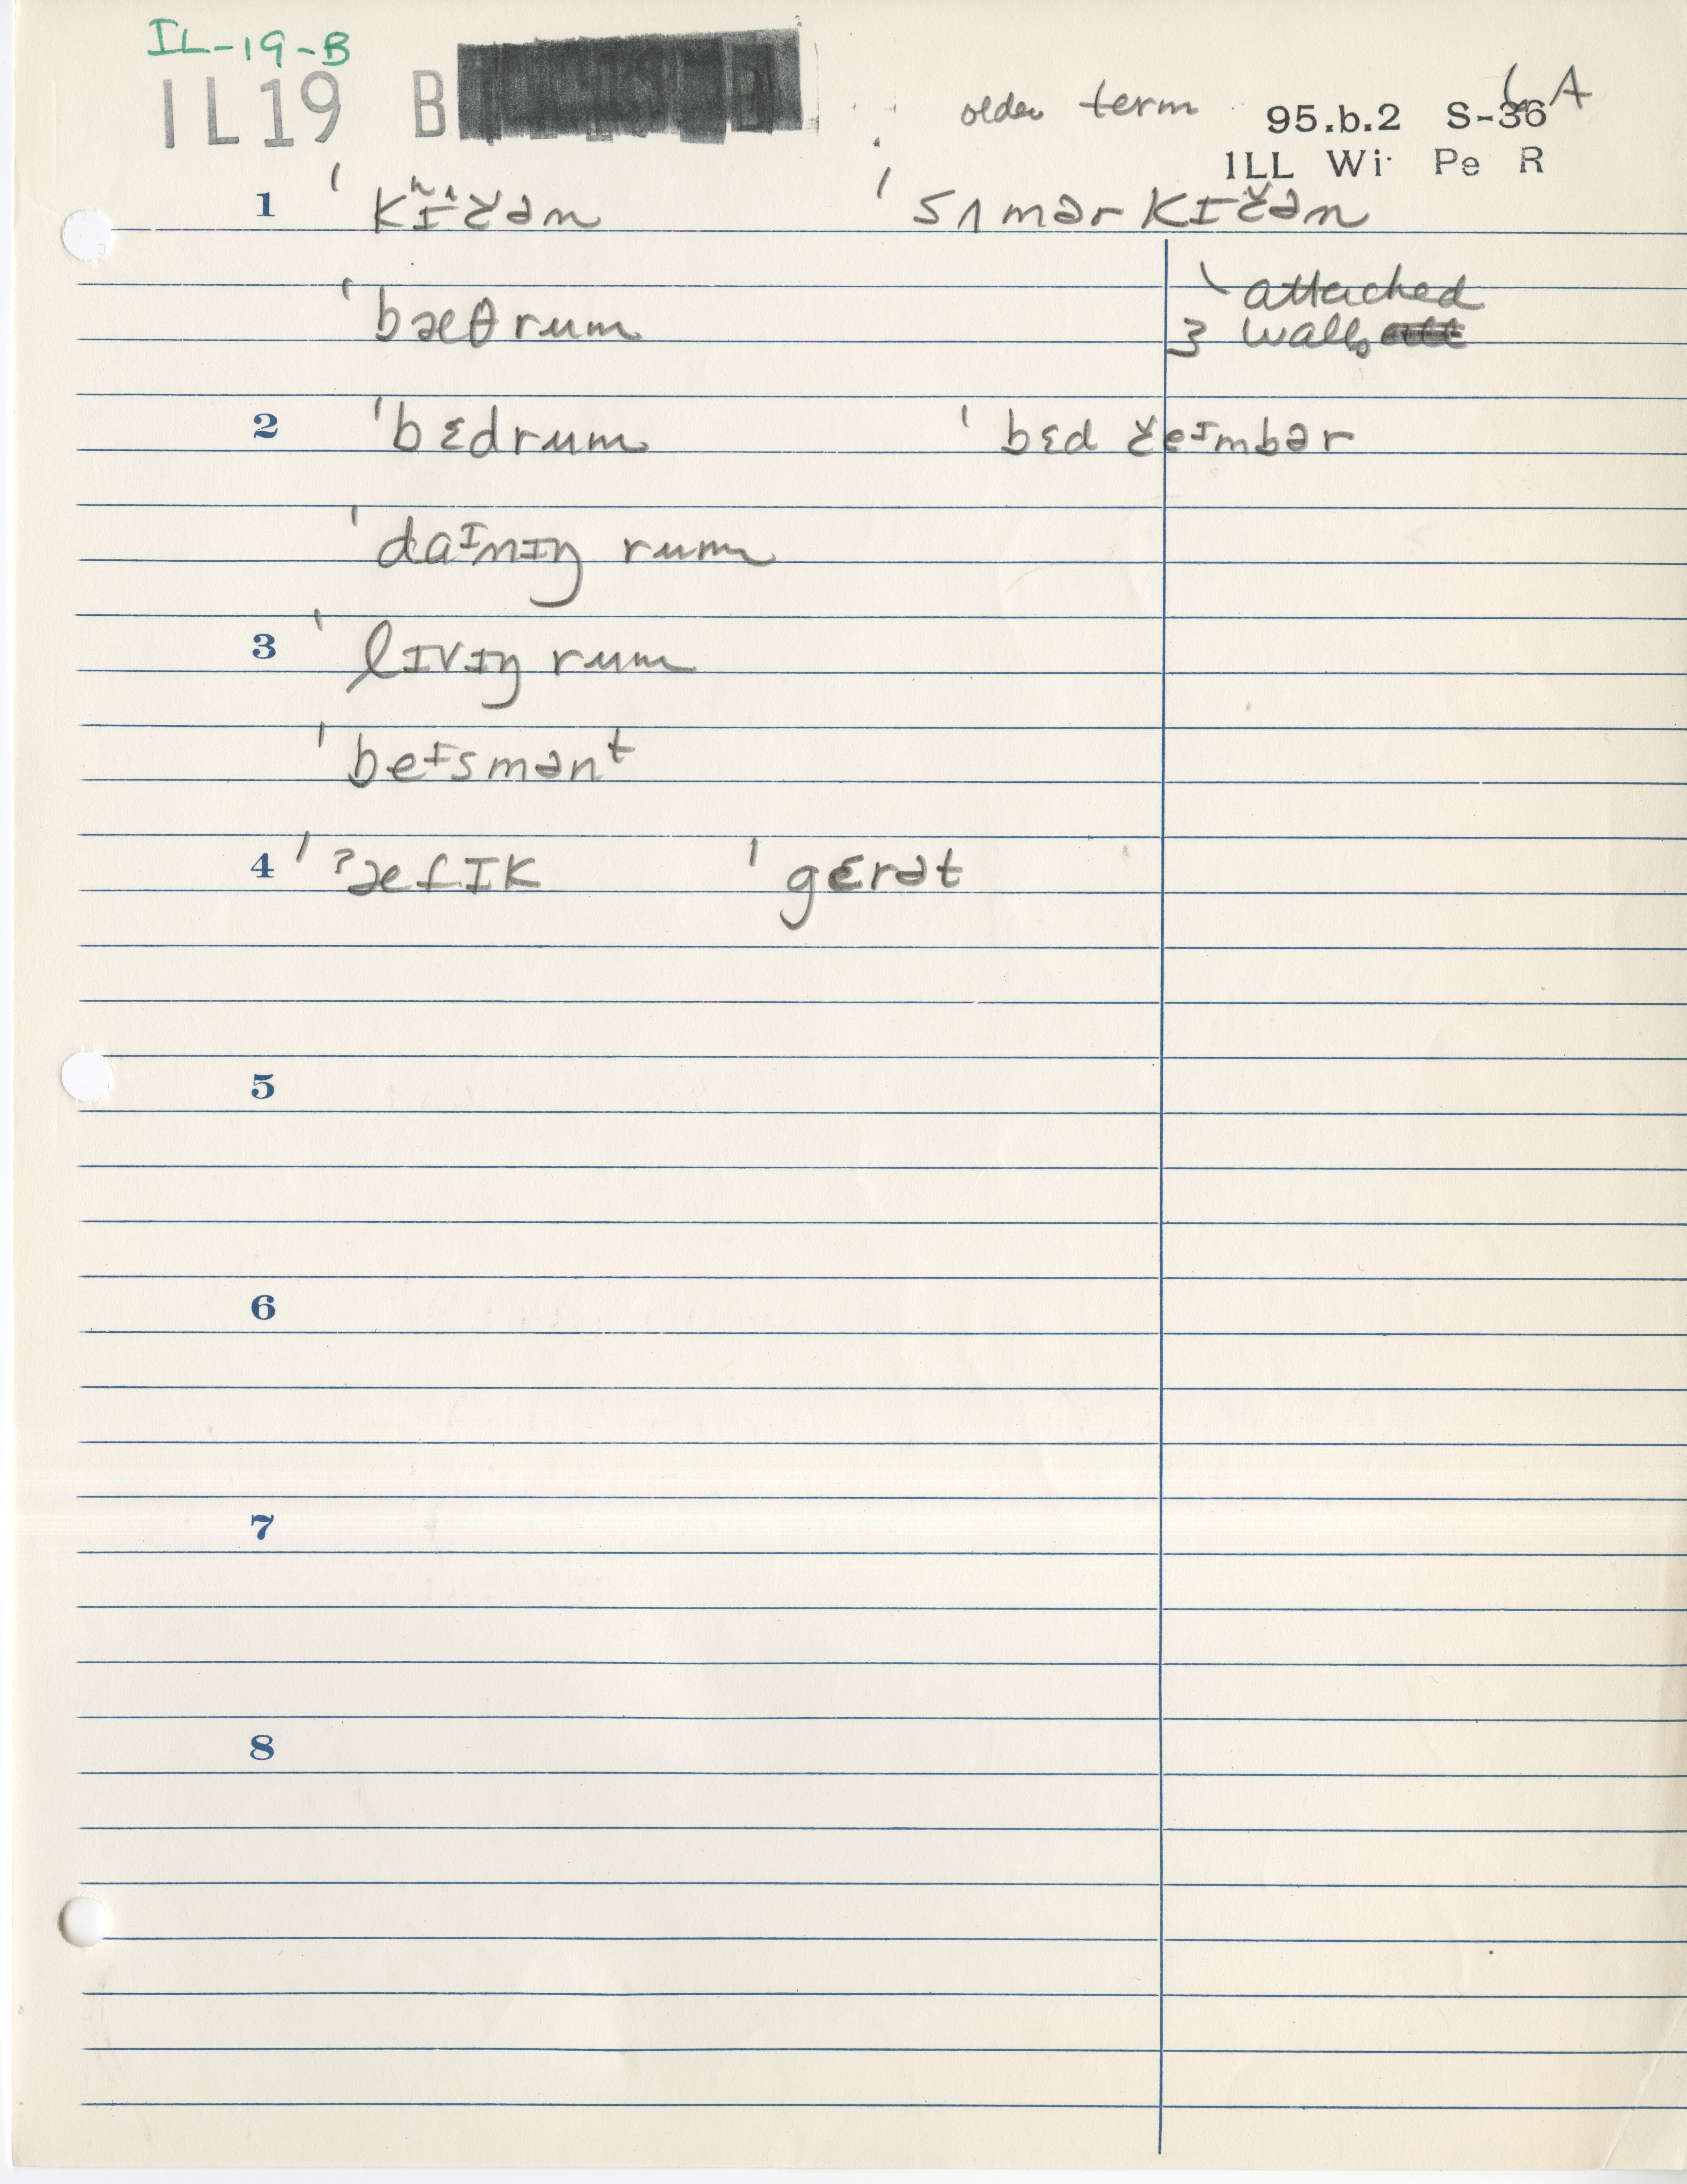 IL-19-B
IL19 B
older term 95.b.2 S-36 A
ILL Wi Pe R
1 ˈkɪčən ˈsʌmər kɪčən
attached
ˈbæθrum 3 walls
2 ˈbɛdrum ˈbɛd čeᶦmbər
ˈdaᶦnɪŋ rum
3 ˈlɪvɪŋ rum
ˈbeᶦsmənᵗ
4 ˈʔætɪk ˈgɛrət
5
6
7
8